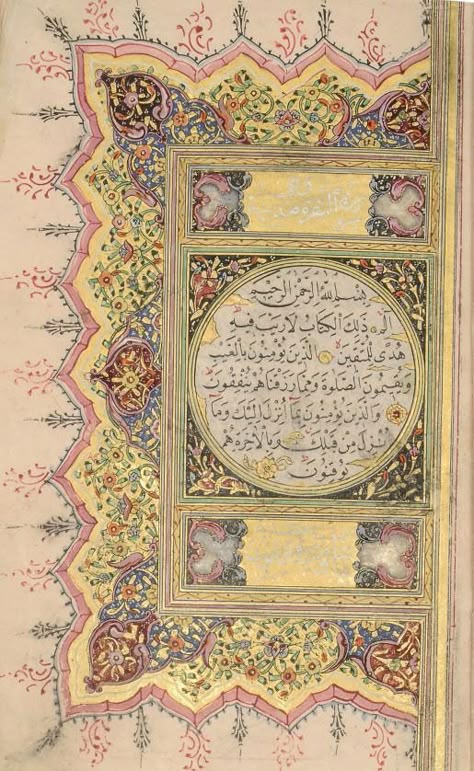 بِسْمِ اللّٰهِ الرَّحْمٰنِ الرَّحِيمِ
الٓمٓ ذٰلِكَ الْكِتَابُ لَا رَيْبَ فِيهِ
هُدًى لِلْمُتَّقِينَ الَّذِينَ يُؤْمِنُونَ بِالْغَيْبِ
وَيُقِيمُونَ الصَّلٰوةَ وَمِمَّا رَزَقْنَاهُمْ يُنْفِقُونَ
وَالَّذِينَ يُؤْمِنُونَ بِمَا اُنْزِلَ اِلَيْكَ وَمَا
اُنْزِلَ مِنْ قَبْلِكَ وَبِالْاٰخِرَةِ هُمْ
يُوقِنُونَ